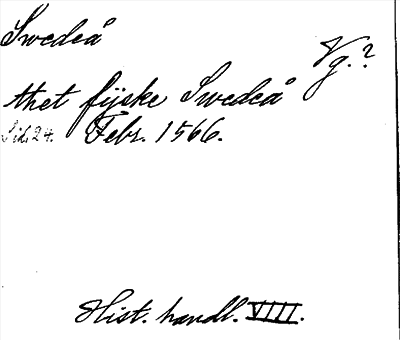 Swedeå
Vg.?
thet fijske Swedeå
Sid. 24. Febr. 1566.
Hist. handl. VIII.